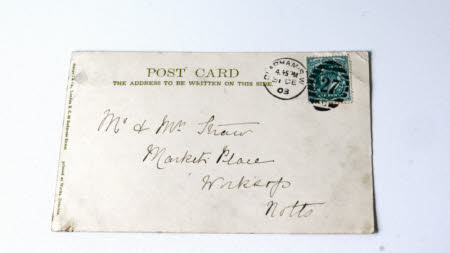 POST CARD
THE ADDRESS TO BE WRITTEN ON THIS SIDE
4.15 PM
DE
03
27
Mr & Mrs Straw
Market Place
Worksop
Notts